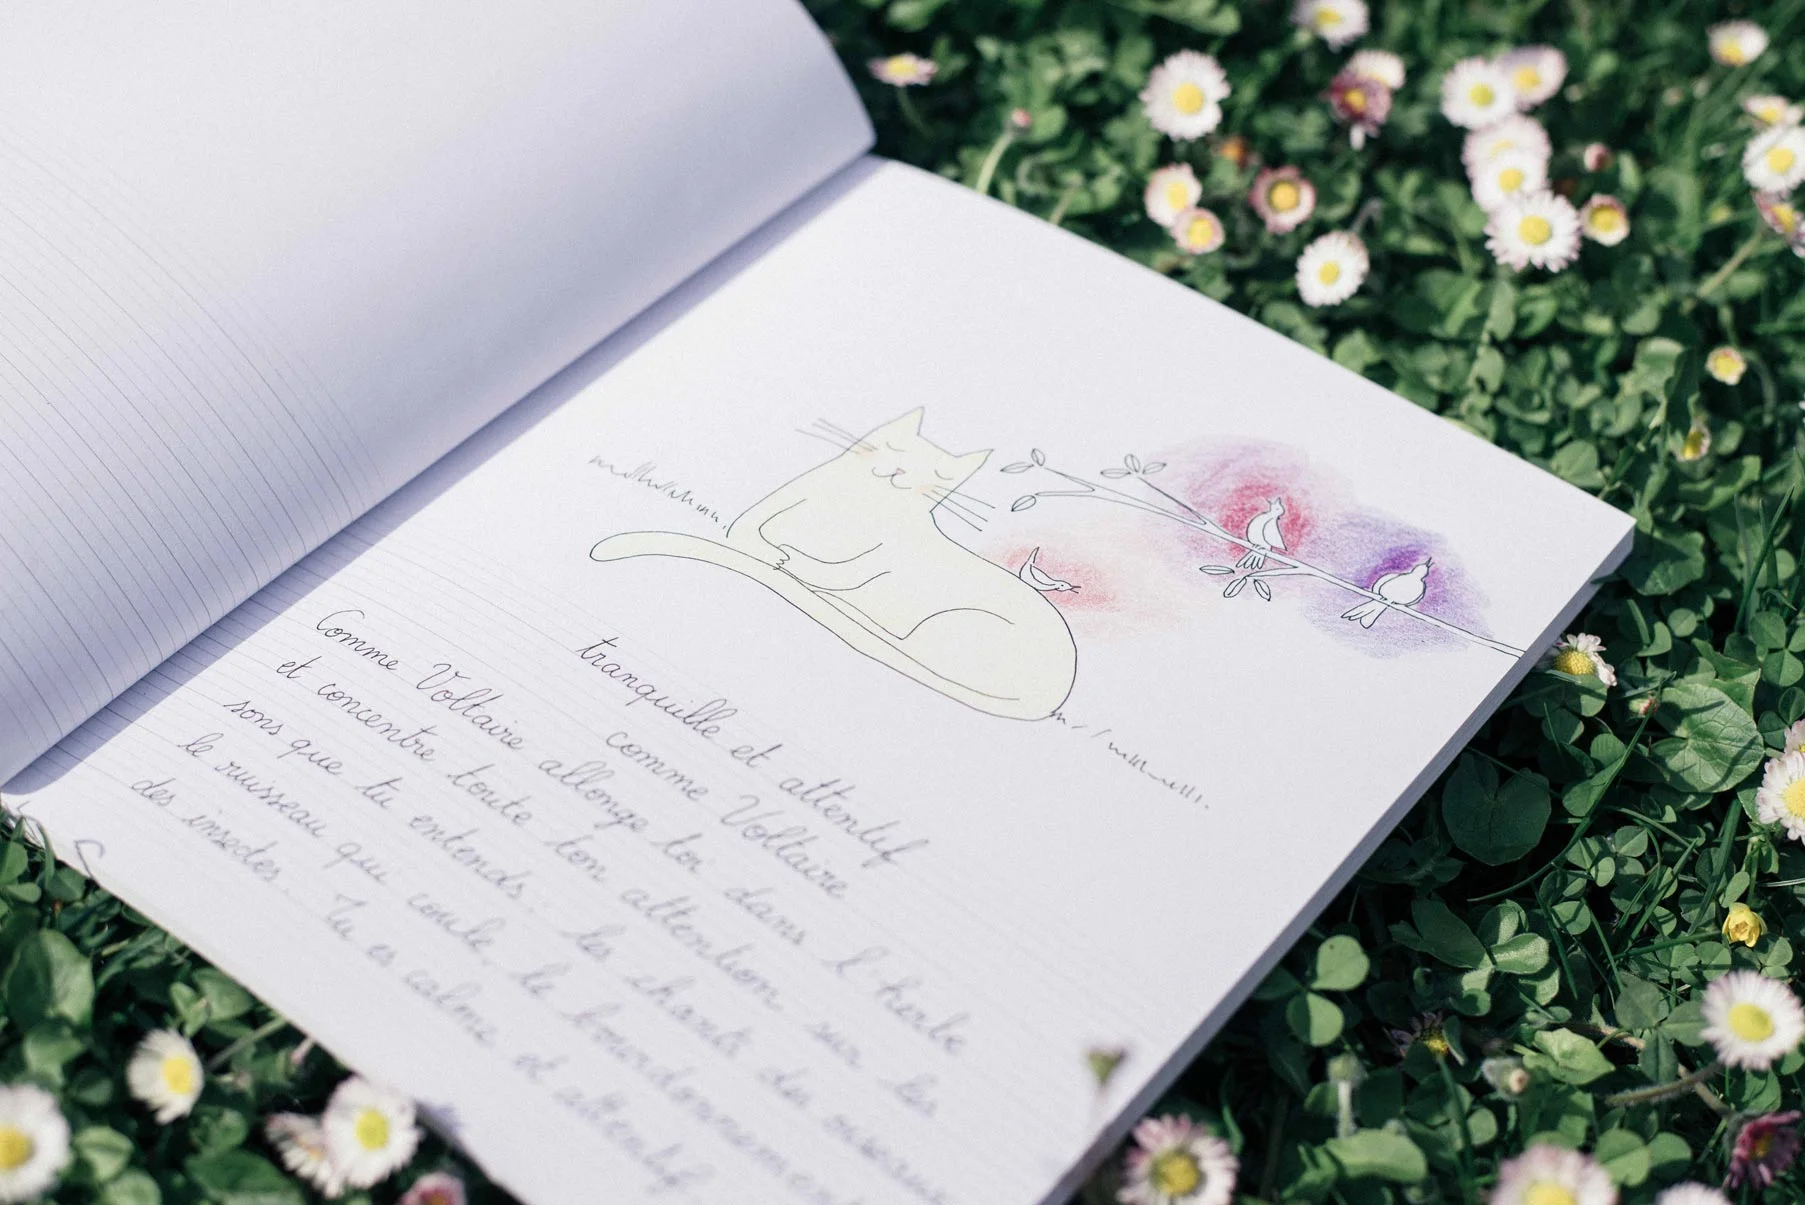 tranquille et attentif
comme Voltaire
Comme Voltaire allonge toi dans l'herbe
et concentre toute ton attention sur les
sons que tu entends : les chants des oiseaux
le ruisseau qui coule, le bourdonnement
des insectes. Tu es calme et attentif